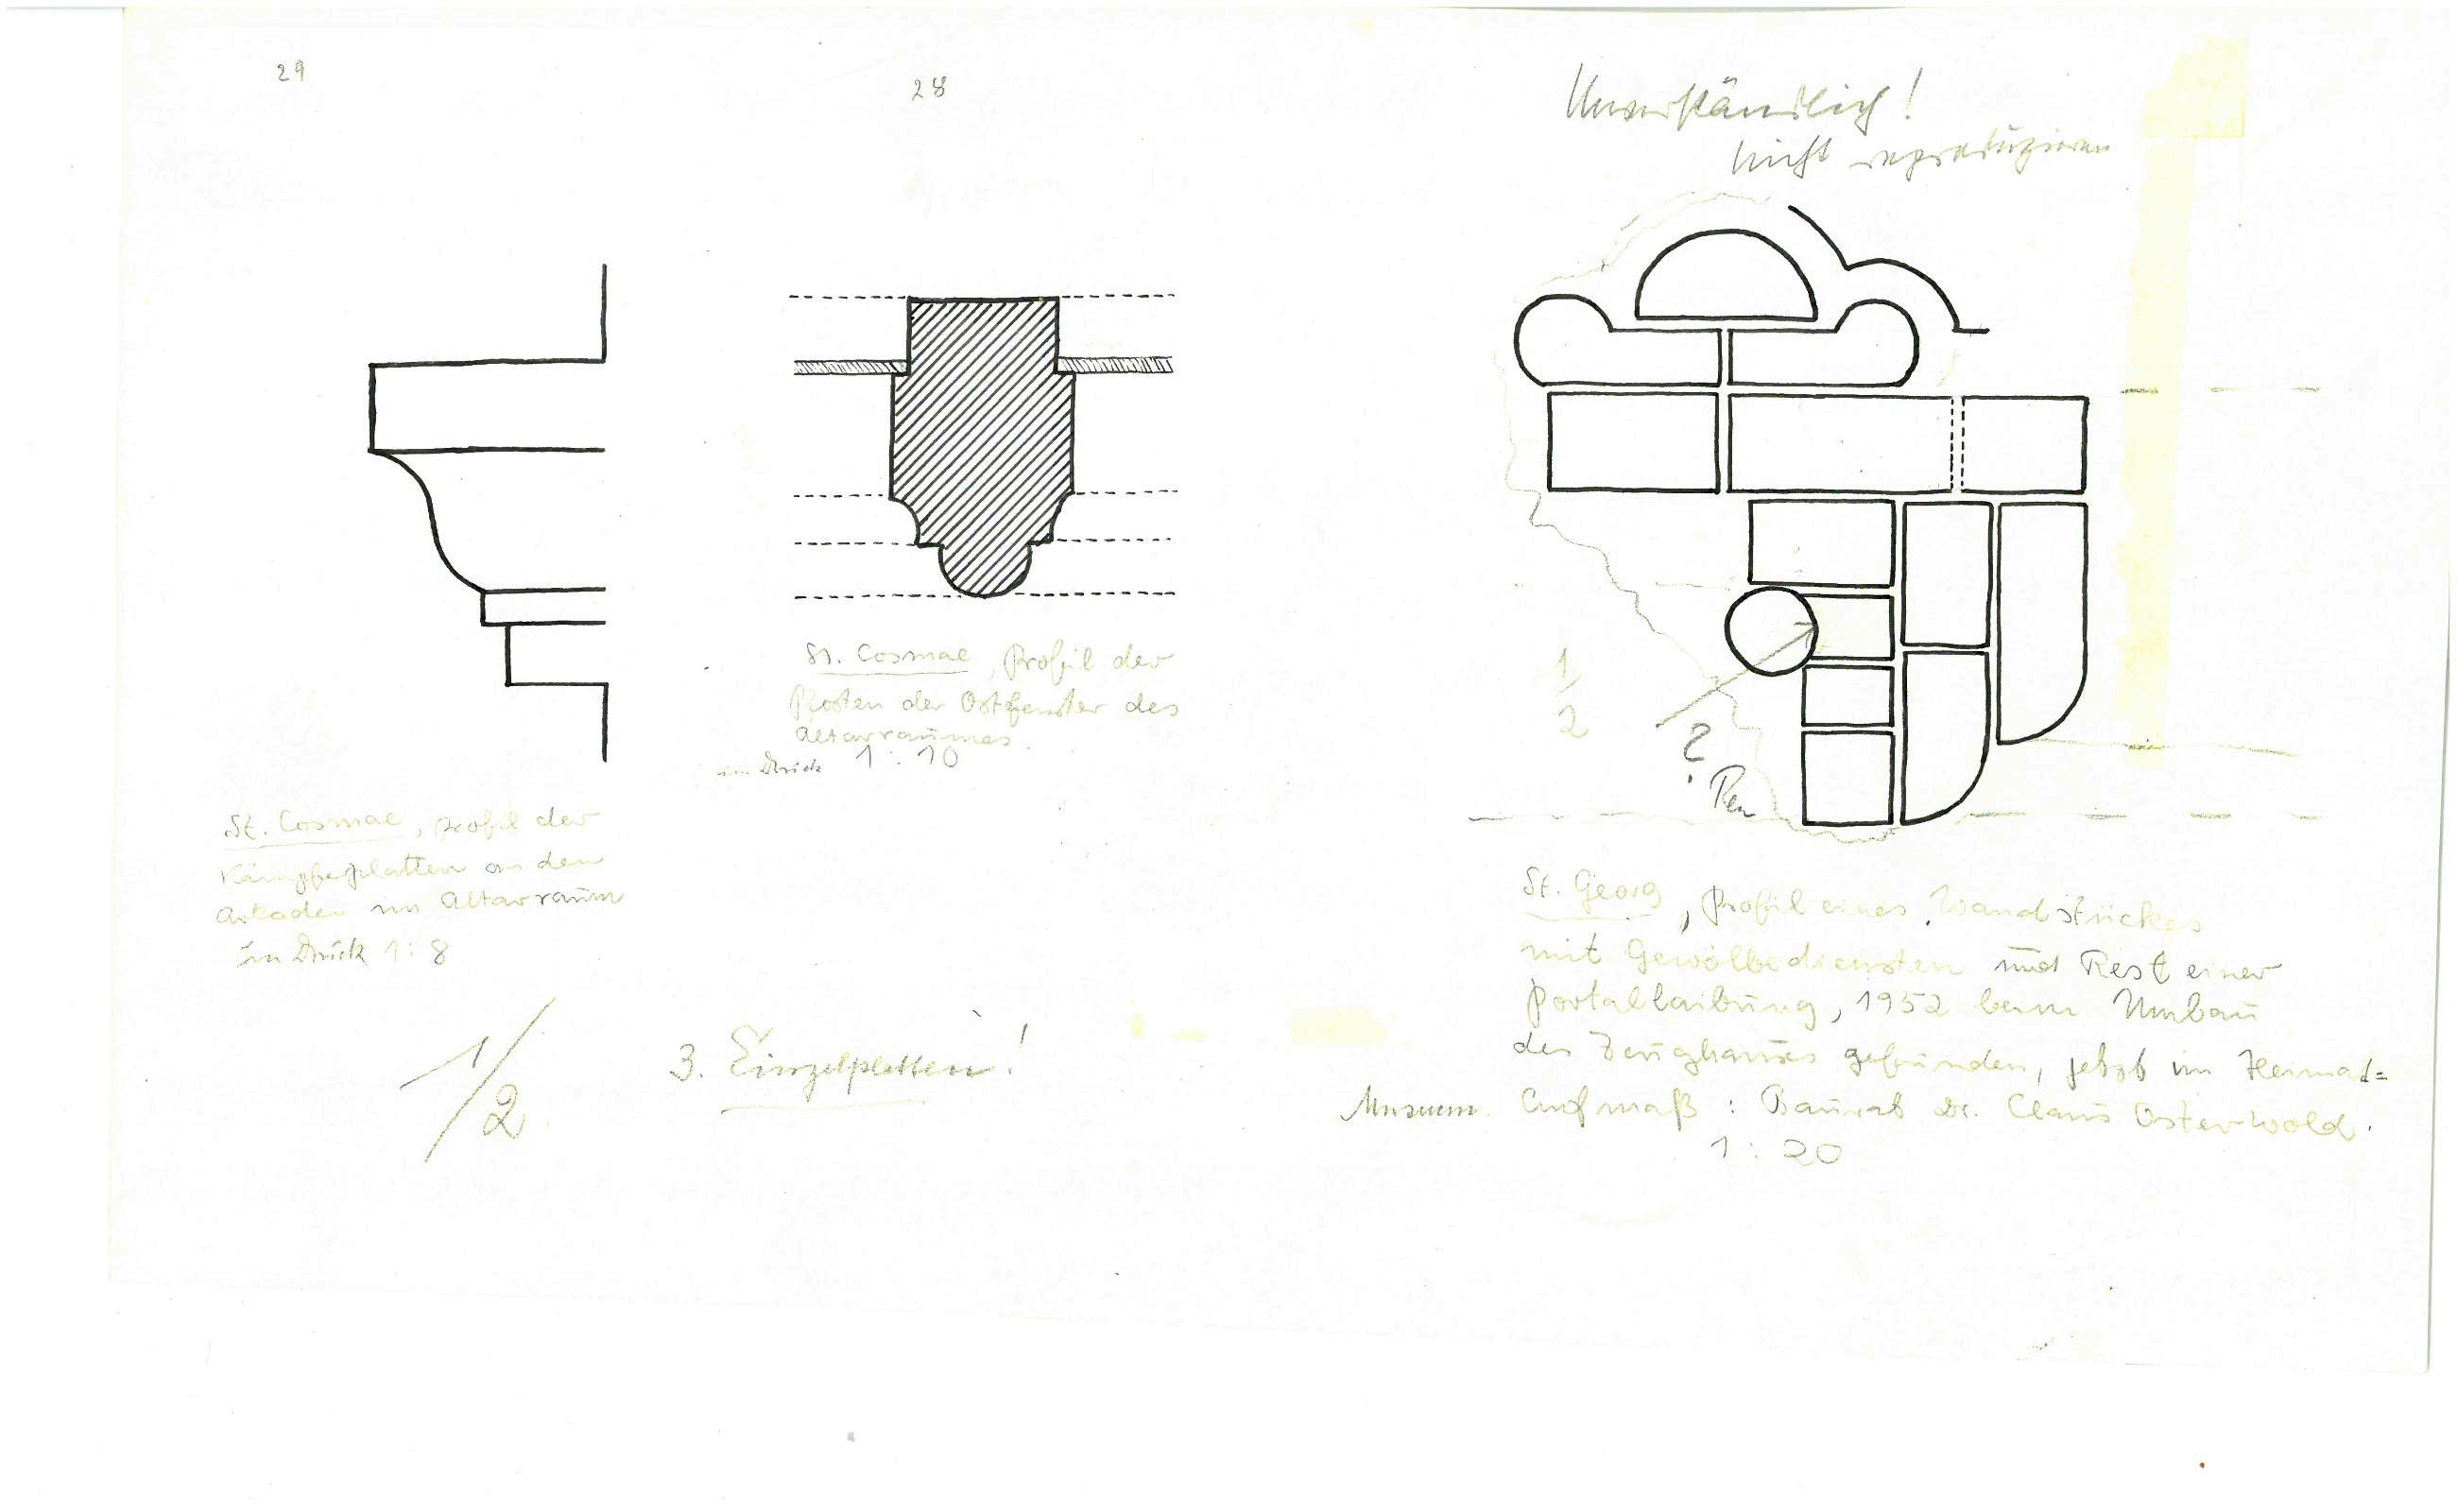 29
28
Unverständlich!
nicht reproduzieren
St. Cosmae, Profil der
Pfosten der Ostfenster des
Altarraumes
im Druck 1:10
St. Cosmae, Profil der
Kämpferplatten an den
Arkaden im Altarraum
im Druck 1:8
1/2
3. Einzelplatten!
1/2
?
St. Georg, Profil eines Wandstückes
mit Gewölbediensten und Rest einer
Portallaibung, 1952 beim Umbau
des Zeughauses gefunden, jetzt im Heimat=
Museum. Aufmaß: Baurat Dr. Claus Osterwold.
1:20